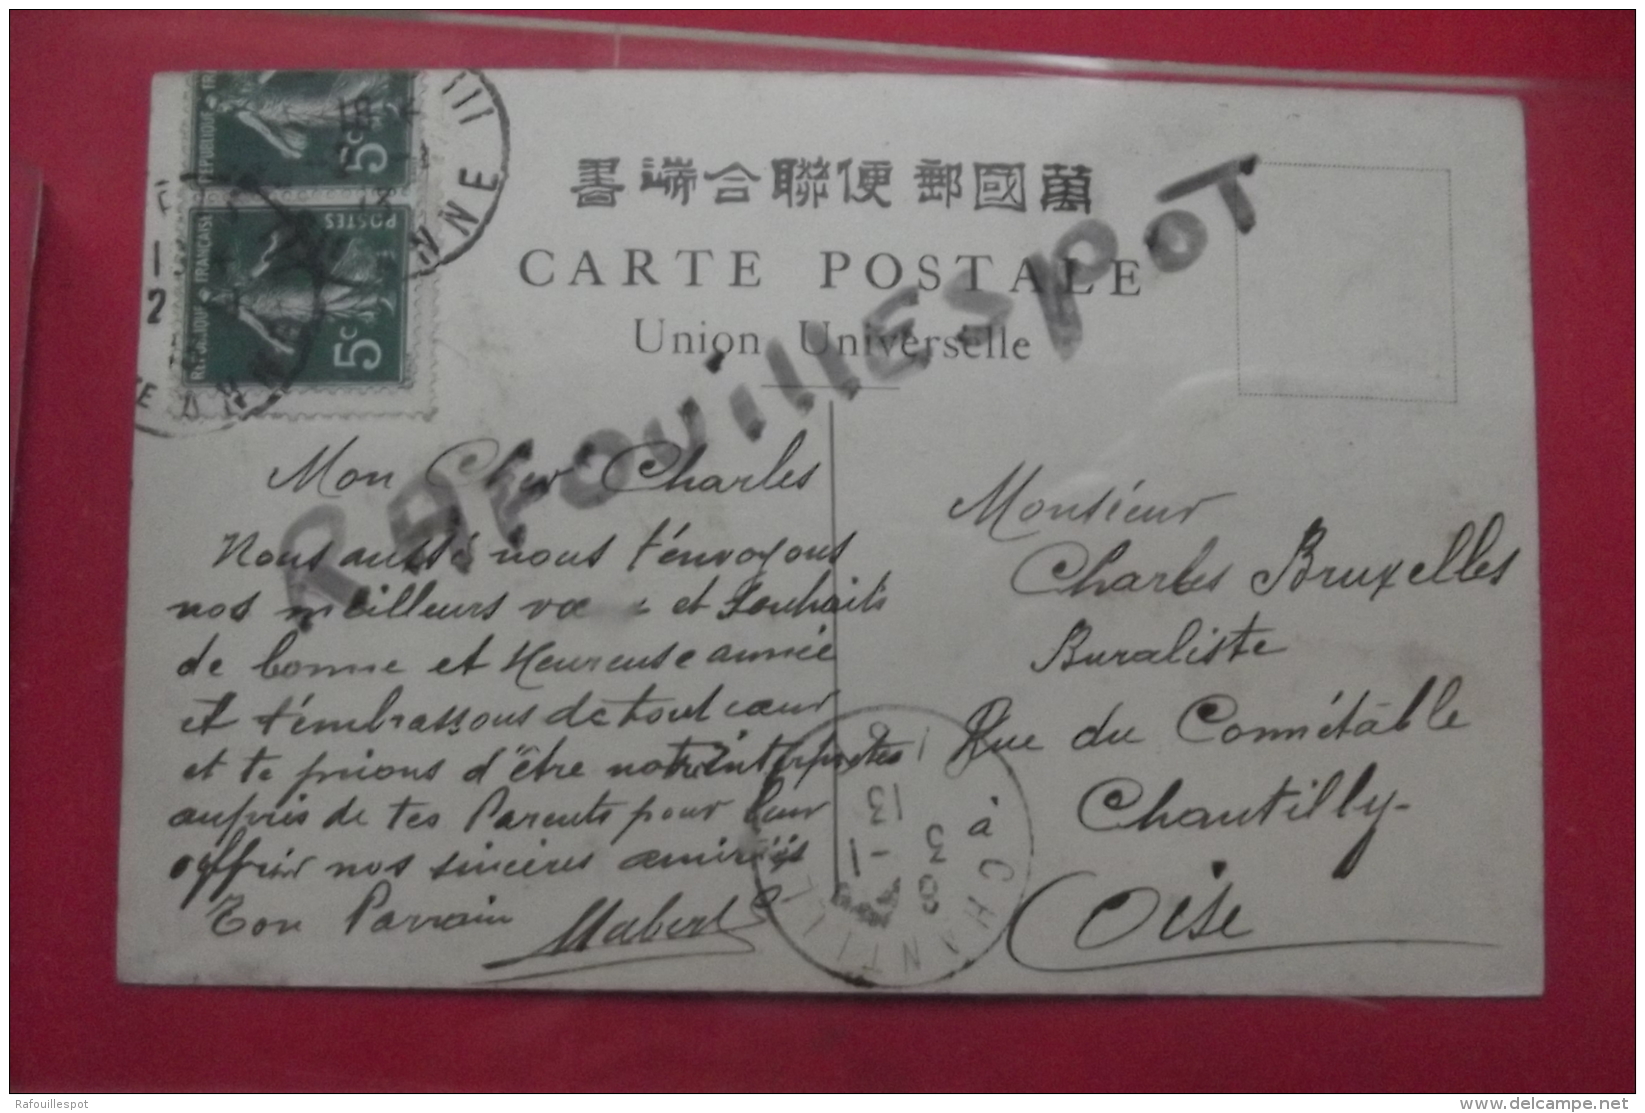 萬國郵便聯合端書
CARTE POSTALE
Union Universelle
RAfouillEspoT
REPUBLIQUE FRA
5c
POSTES
REPUBLIQUE FRANCAISE
5c
NNE
Mon Cher Charles
Nous aussi nous t'envoyons
nos meilleurs et Souhaits
de bonne et Heureuse année
et t'embrassons de tout cœur
et te prions d'être notre interprètes
auprès de tes Parents pour leur
offrir nos sincères amitiés
Ton Parrain
Monsieur
Charles Bruxelles
Buraliste
Rue du Connétable
Chantilly-
Oise
à CHANTILLY
3
-1
13
Rafouillespot
www.delcampe.net